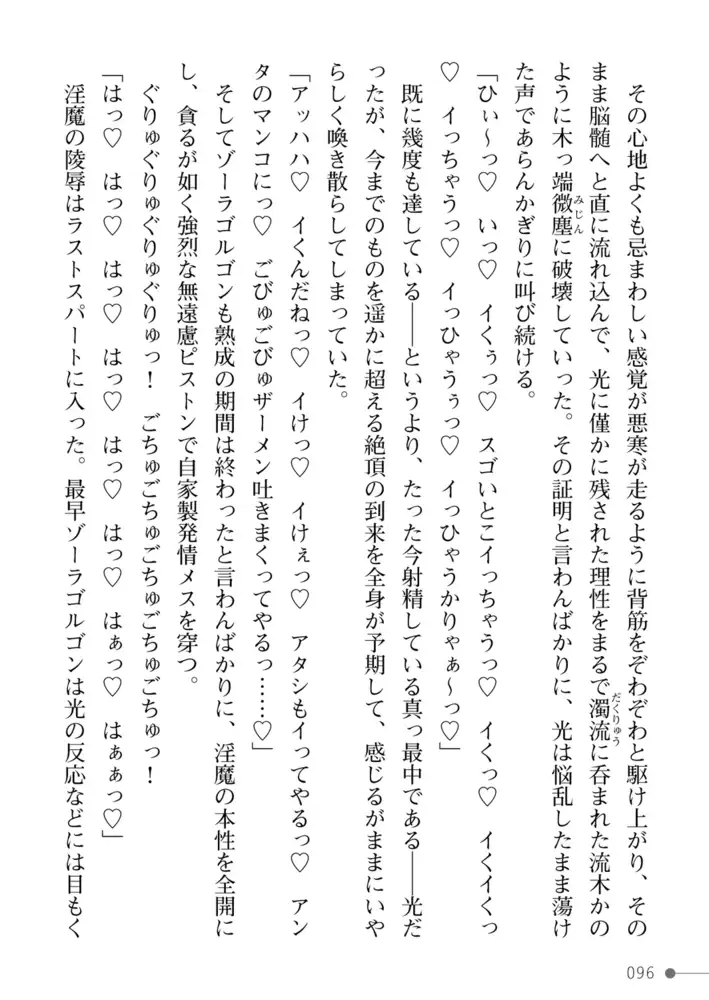 その心地よくも忌まわしい感覚が悪寒が走るように背筋をぞわぞわと駆け上がり、その
まま脳髄へと直に流れ込んで、光に僅かに残された理性をまるで濁流に呑まれた流木かの
ように木っ端微塵に破壊していった。その証明と言わんばかりに、光は悩乱したまま蕩け
た声であらんかぎりに叫び続ける。
「ひぃ〜っ♡　いっ♡　イくぅっ♡　スゴいとこイっちゃうっ♡　イくっ♡　イくイくっ
♡　イっちゃうっ♡　イっひゃうぅっ♡　イっひゃうかりゃぁ〜っ♡」
既に幾度も達している――というより、たった今射精している真っ最中である――光だ
ったが、今までのものを遥かに超える絶頂の到来を全身が予期して、感じるがままにいや
らしく喚き散らしてしまっていた。
「アッハハ♡　イくんだねっ♡　イけっ♡　イけぇっ♡　アタシもイってやるっ♡　アン
タのマンコにっ♡　ごびゅごびゅザーメン吐きまくってやるっ……♡」
そしてゾーラゴルゴンも熟成の期間は終わったと言わんばかりに、淫魔の本性を全開に
し、貪るが如く強烈な無遠慮ピストンで自家製発情メスを穿つ。
ぐりゅぐりゅぐりゅぐりゅっ！　ごちゅごちゅごちゅごちゅごちゅっ！
「はっ♡　はっ♡　はっ♡　はっ♡　はっ♡　はっ♡　はぁっ♡　はぁぁっ♡」
淫魔の陵辱はラストスパートに入った。最早ゾーラゴルゴンは光の反応などには目もく
みじん
だくりゅう
096